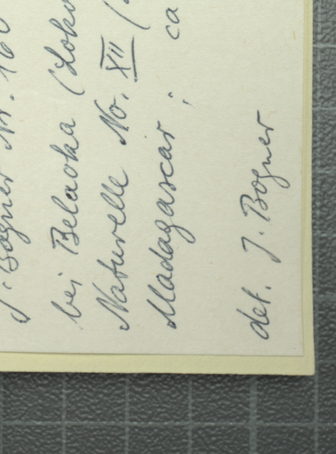 J. Bogner Nr. 160
bei Belaoka (Loko
Naturelle No. XII (
Madagascar; ca
det. J. Bogner